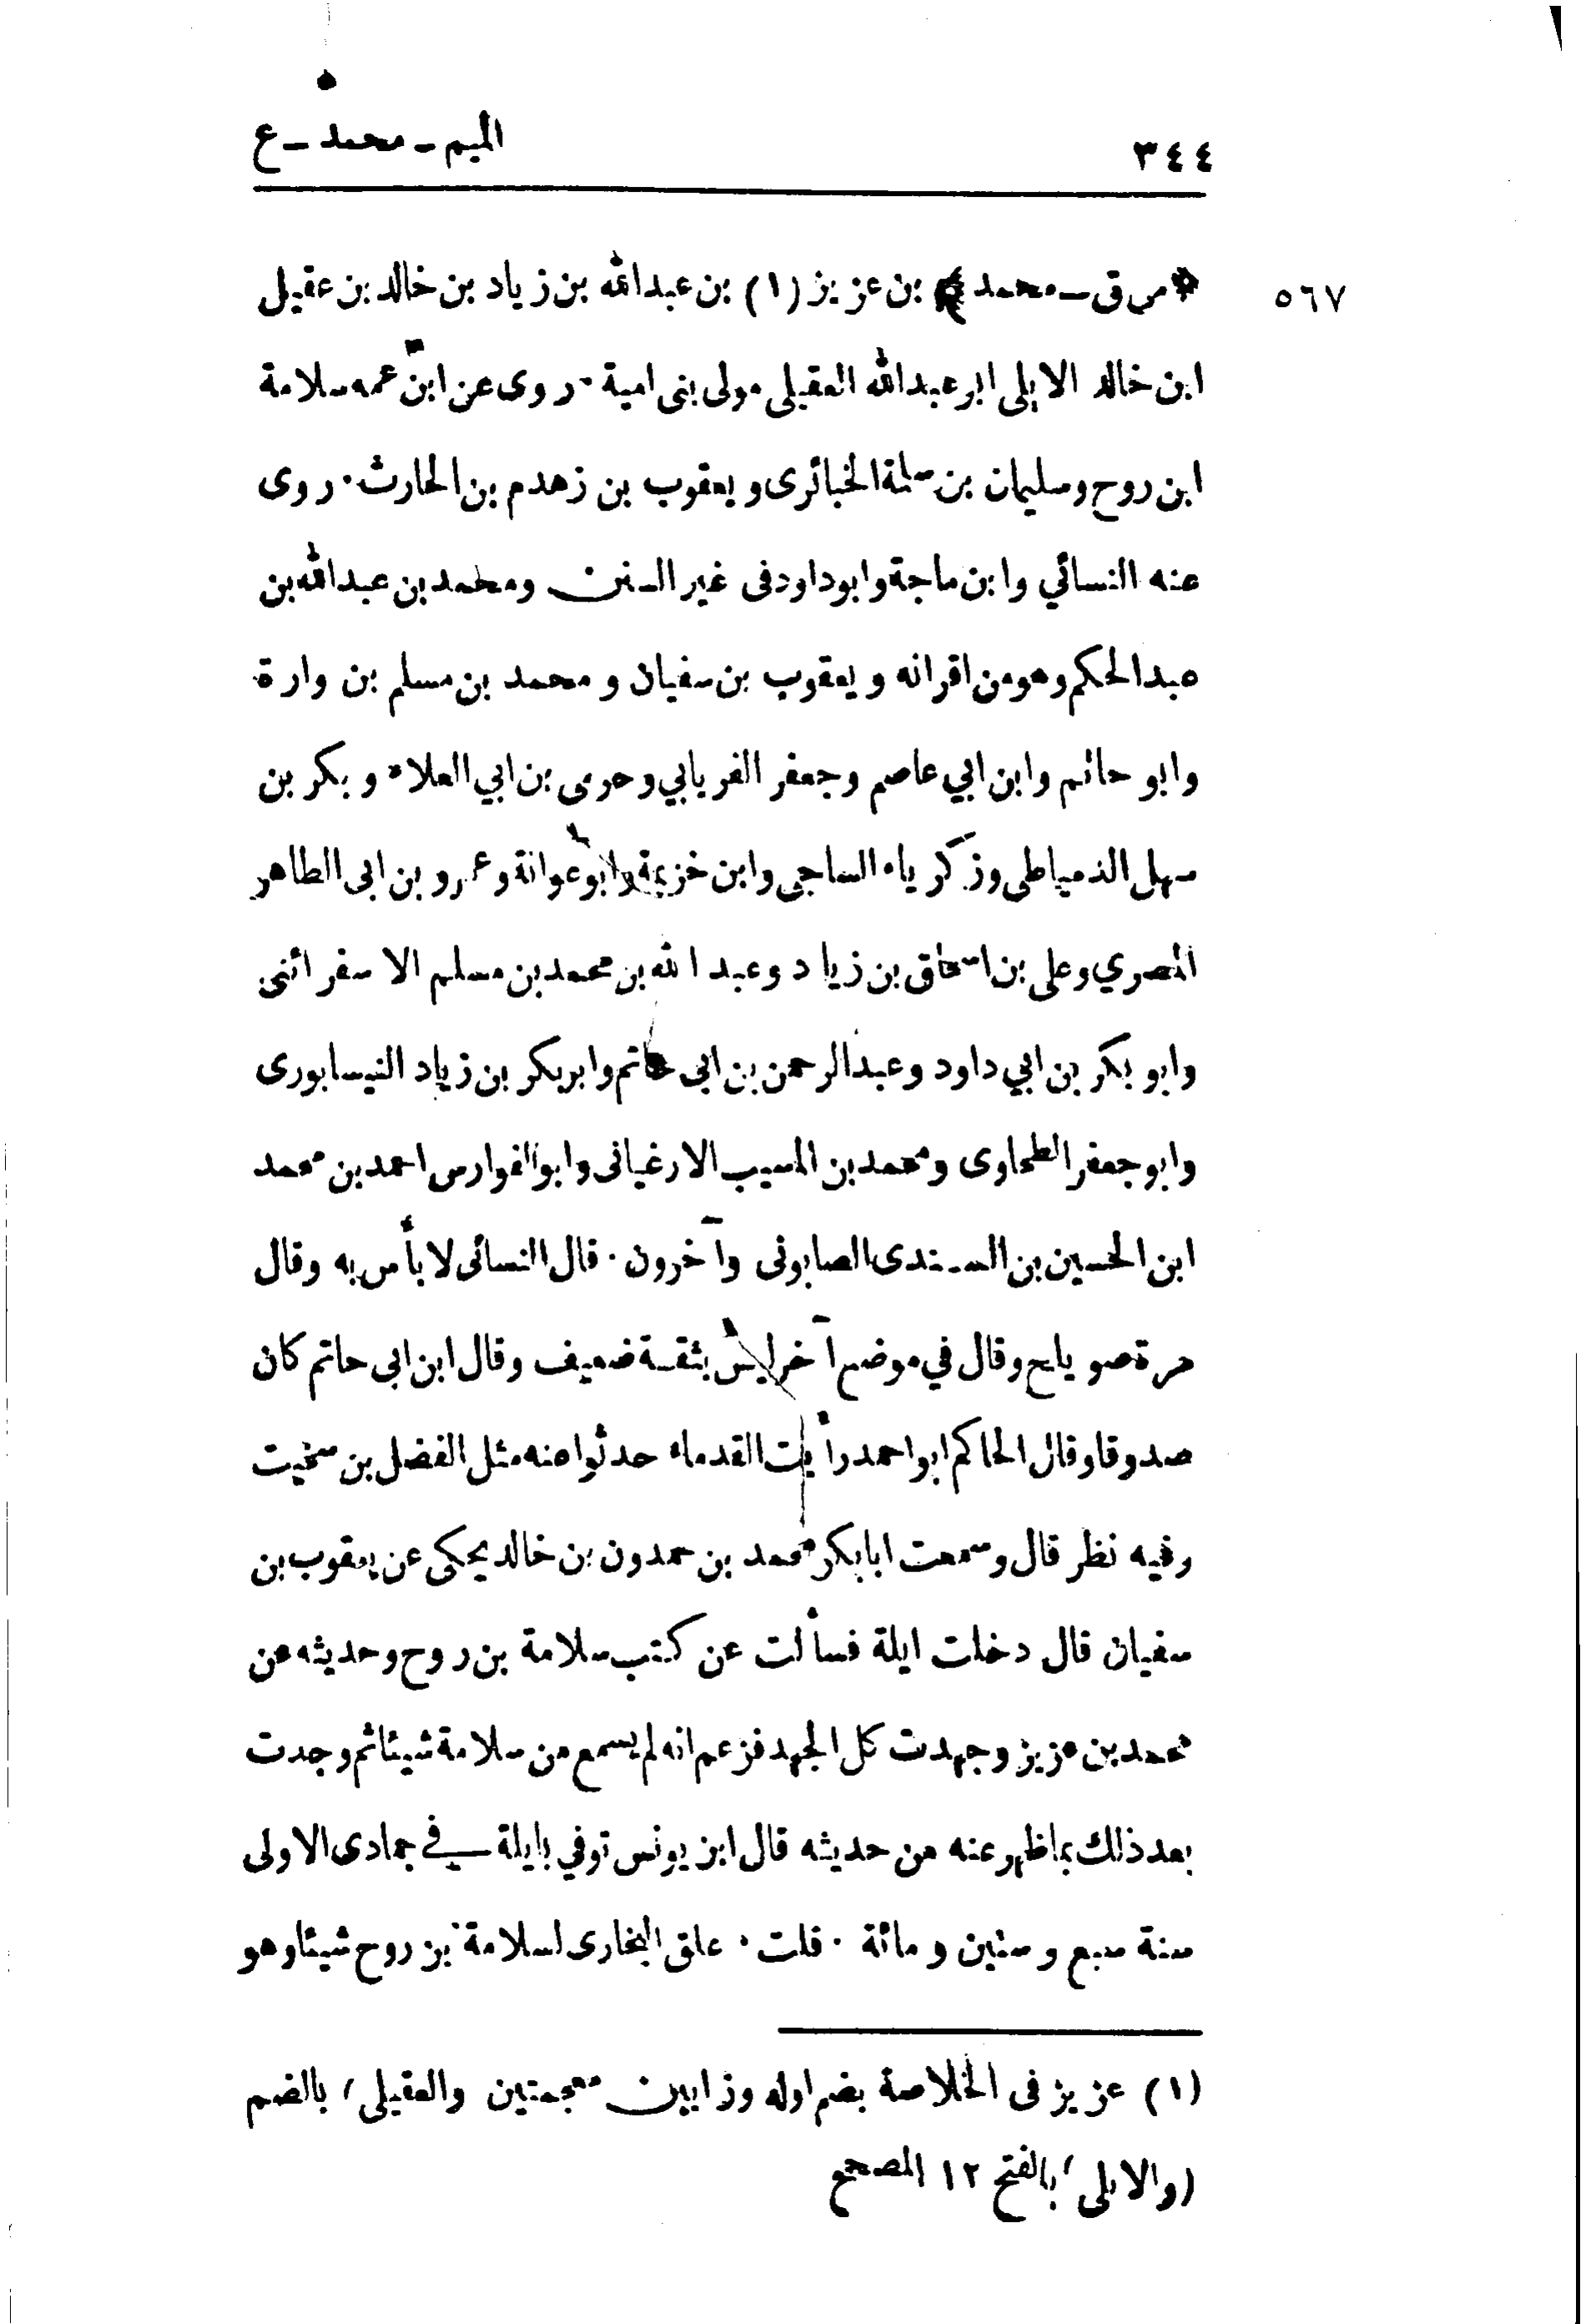 ٣٤٤ الميم - محمد - ع
٥٦٧ * س ق - محمد ﴾ بن عزيز (١) بن عبدالله بن زياد بن خالد بن عقيل
ابن خالد الايلى ابو عبدالله العقيلى مولى بنى امية · روى عن ابن عمه سلامة
ابن روح وسليمان بن سلمة الخبائرى ويعقوب بن زهدم بن الحارث · روى
عنه النسائي وابن ماجة وابو داود فى غير السنن ومحمد بن عبدالله بن
عبد الحكم وهو من اقرانه ويعقوب بن سفيان ومحمد بن مسلم بن وارة
وابو حاتم وابن ابي عاصم وجعفر الفريابي وحرمى بن ابي العلاء وبكر بن
سهل الدمياطى وزكرياء الساجى وابن خزيمة وابو عوانة وعمرو بن ابى الطاهر
المصري وعلى بن اسحاق بن زياد وعبد الله بن محمد بن مسلم الاسفرائنى
وابو بكر بن ابي داود وعبد الرحمن بن ابى حاتم وابو بكر بن زياد النيسابورى
وابو جعفر الطحاوى ومحمد بن المسيب الارغيانى وابو الفوارس احمد بن محمد
ابن الحسين بن السندى الصابونى وآخرون · قال النسائى لا بأس به وقال
مرة صويلح وقال في موضع آخر ليس بثقة ضعيف وقال ابن ابى حاتم كان
صدوقا وقال الحاكم ابو احمد رأيت القدماء حدثوا عنه مثل الفضل بن سخيت
وفيه نظر قال وسمعت ابا بكر محمد بن حمدون بن خالد يحكى عن يعقوب بن
سفيان قال دخلت ايلة فسألت عن كتب سلامة بن روح وحديثه عن
محمد بن عزيز وجهدت كل الجهد فزعم انه لم يسمع من سلامة شيئا ثم وجدت
بعد ذلك بما ظهر عنه من حديثه قال ابن يونس توفي بايلة في جمادى الاولى
سنة سبع وستين ومائة · قلت · علق البخارى لسلامة بن روح شيئا وهو
(١) عزيز فى الخلاصة بضم اوله وزايين معجمتين والعقيلى) بالضم
(والايلى) بالفتح ١٢ المصحح